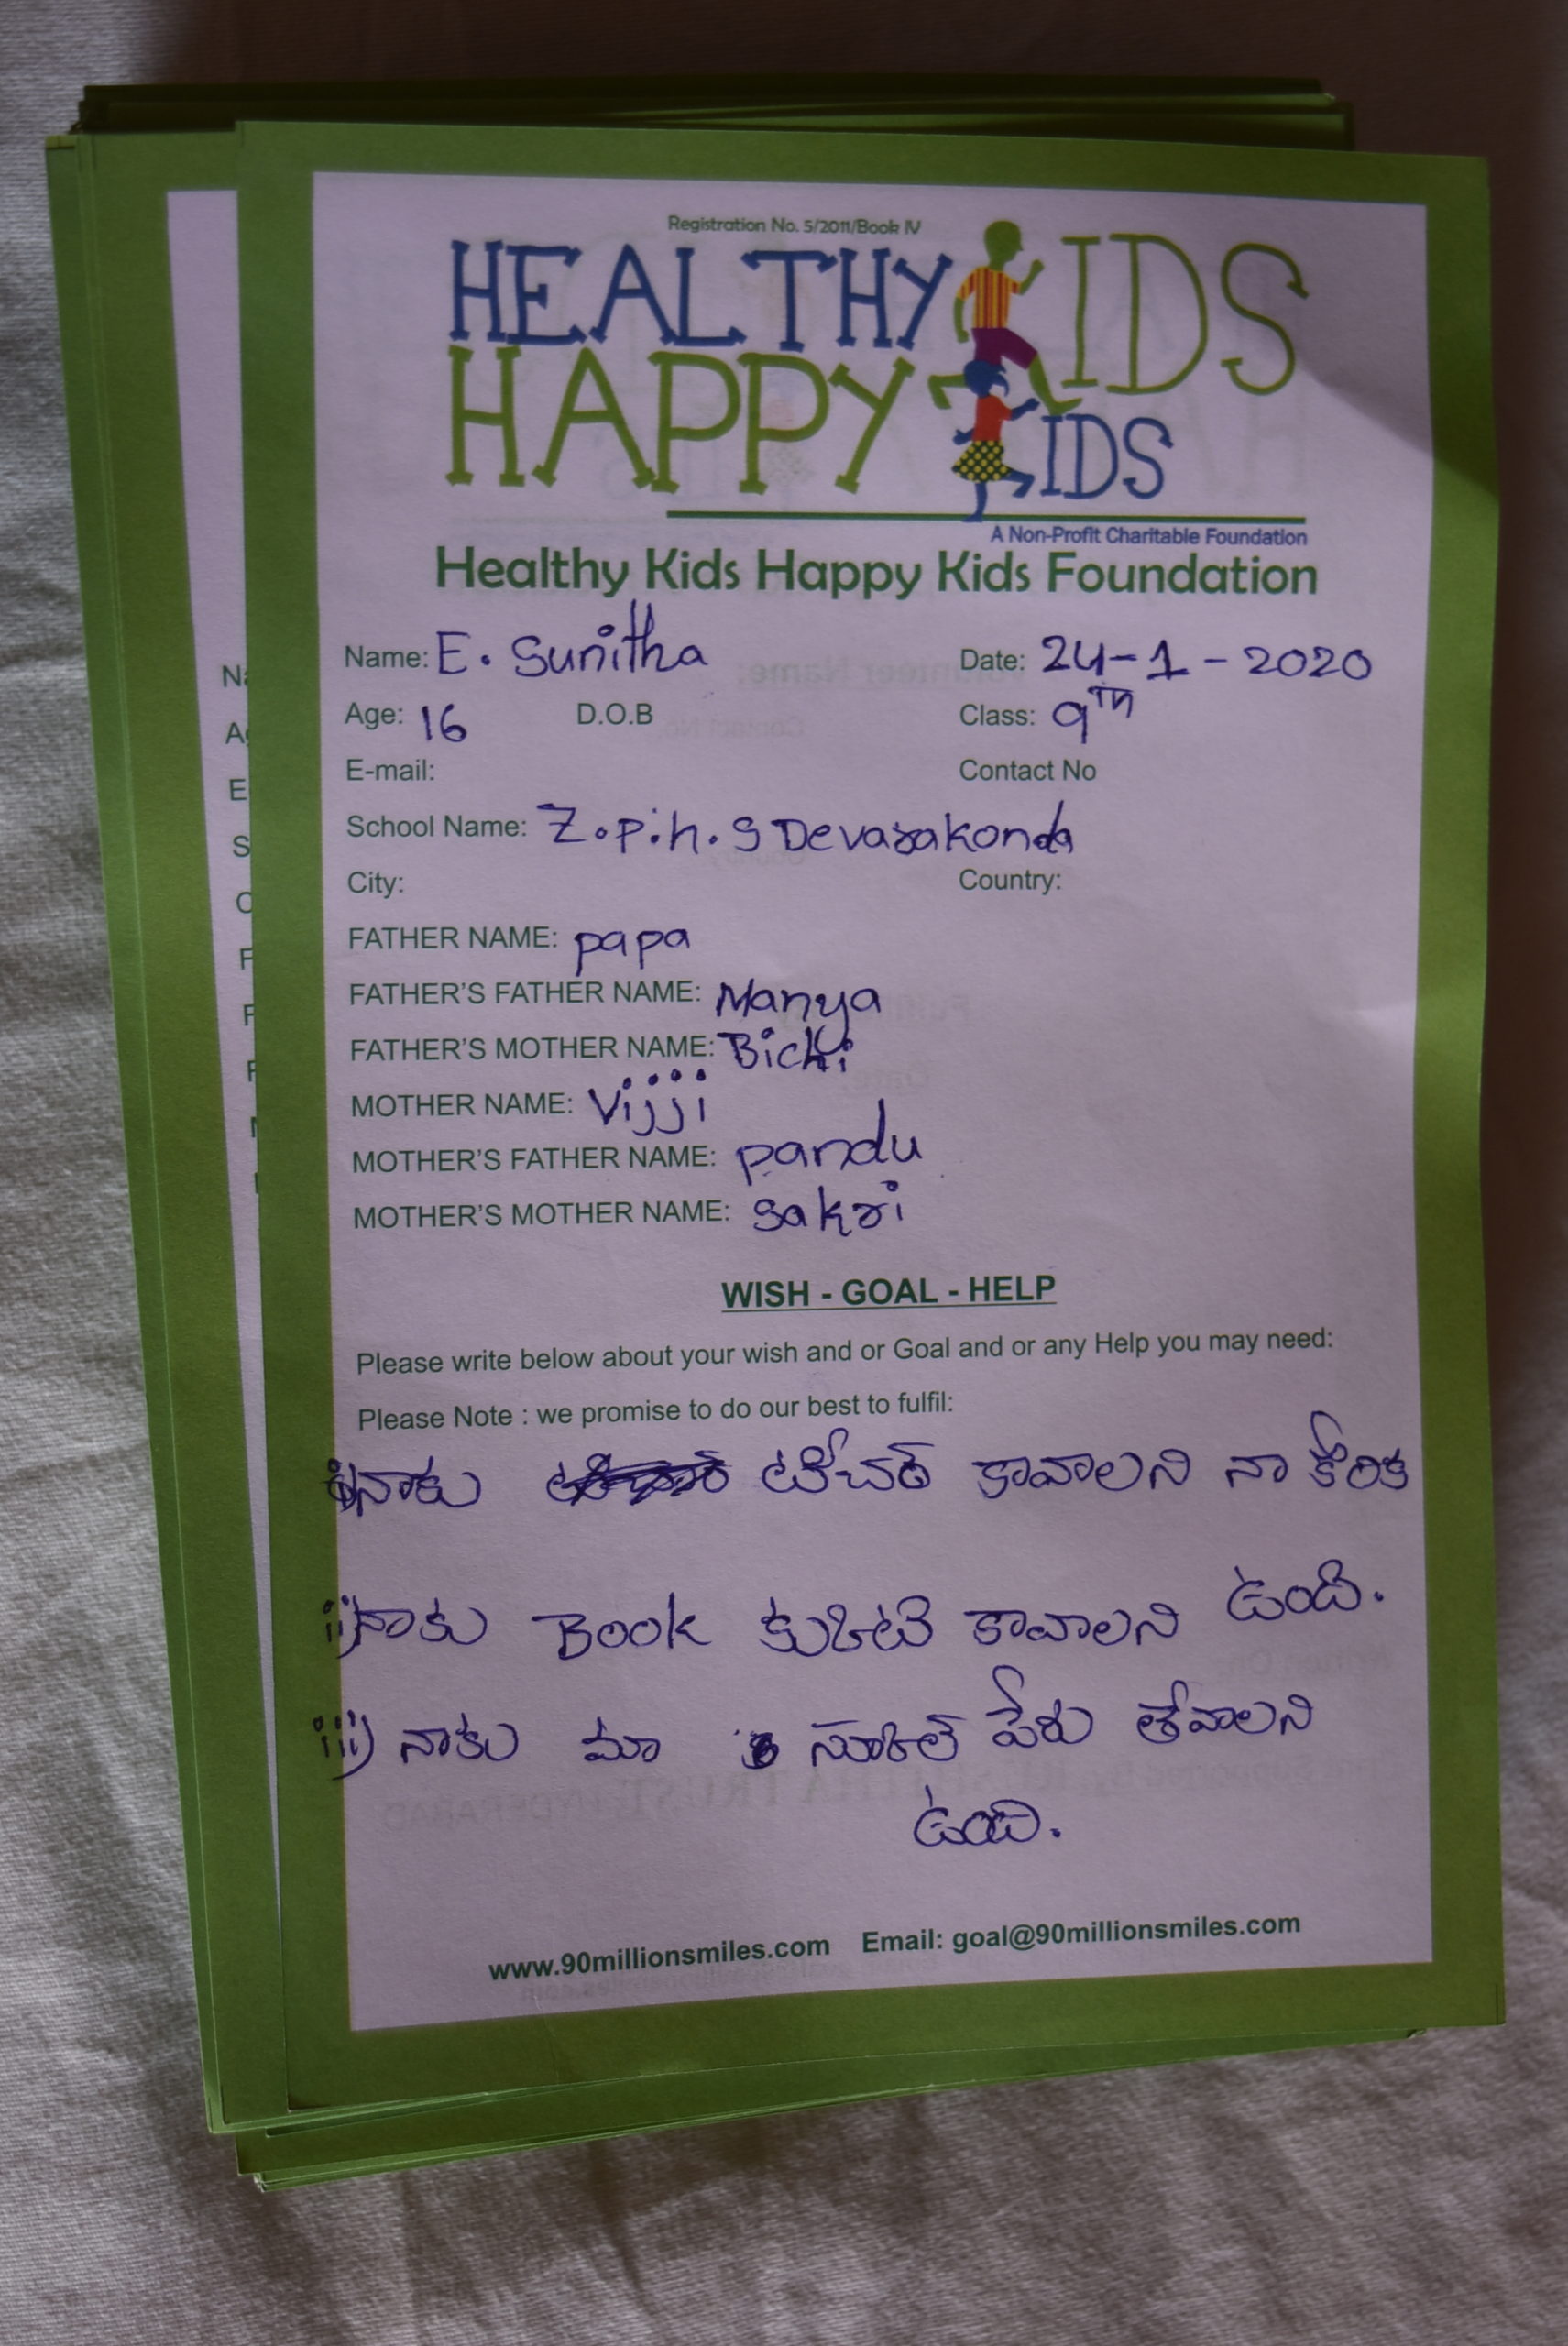 Registration No. 5/2011/Book IV
HEALTHY KIDS
HAPPY KIDS
A Non-Profit Charitable Foundation
Healthy Kids Happy Kids Foundation
Name: E. Sunitha Date: 24-1-2020
Age: 16 D.O.B Class: 9TH
E-mail: Contact No
School Name: Z.P.h.S Devarakonda
City: Country:
FATHER NAME: papa
FATHER'S FATHER NAME: Manya
FATHER'S MOTHER NAME: Bichi
MOTHER NAME: Vijji
MOTHER'S FATHER NAME: pandu
MOTHER'S MOTHER NAME: sakri
WISH - GOAL - HELP
Please write below about your wish and or Goal and or any Help you may need:
Please Note : we promise to do our best to fulfil:
i) నాకు టీచర్ కావాలని నా కోరిక
ఉంది.
ii) నాకు Book కావాలని
iii) నాకు మా స్కూల్ పేరు తేవాలని
ఉంది.
www.90millionsmiles.com Email: goal@90millionsmiles.com